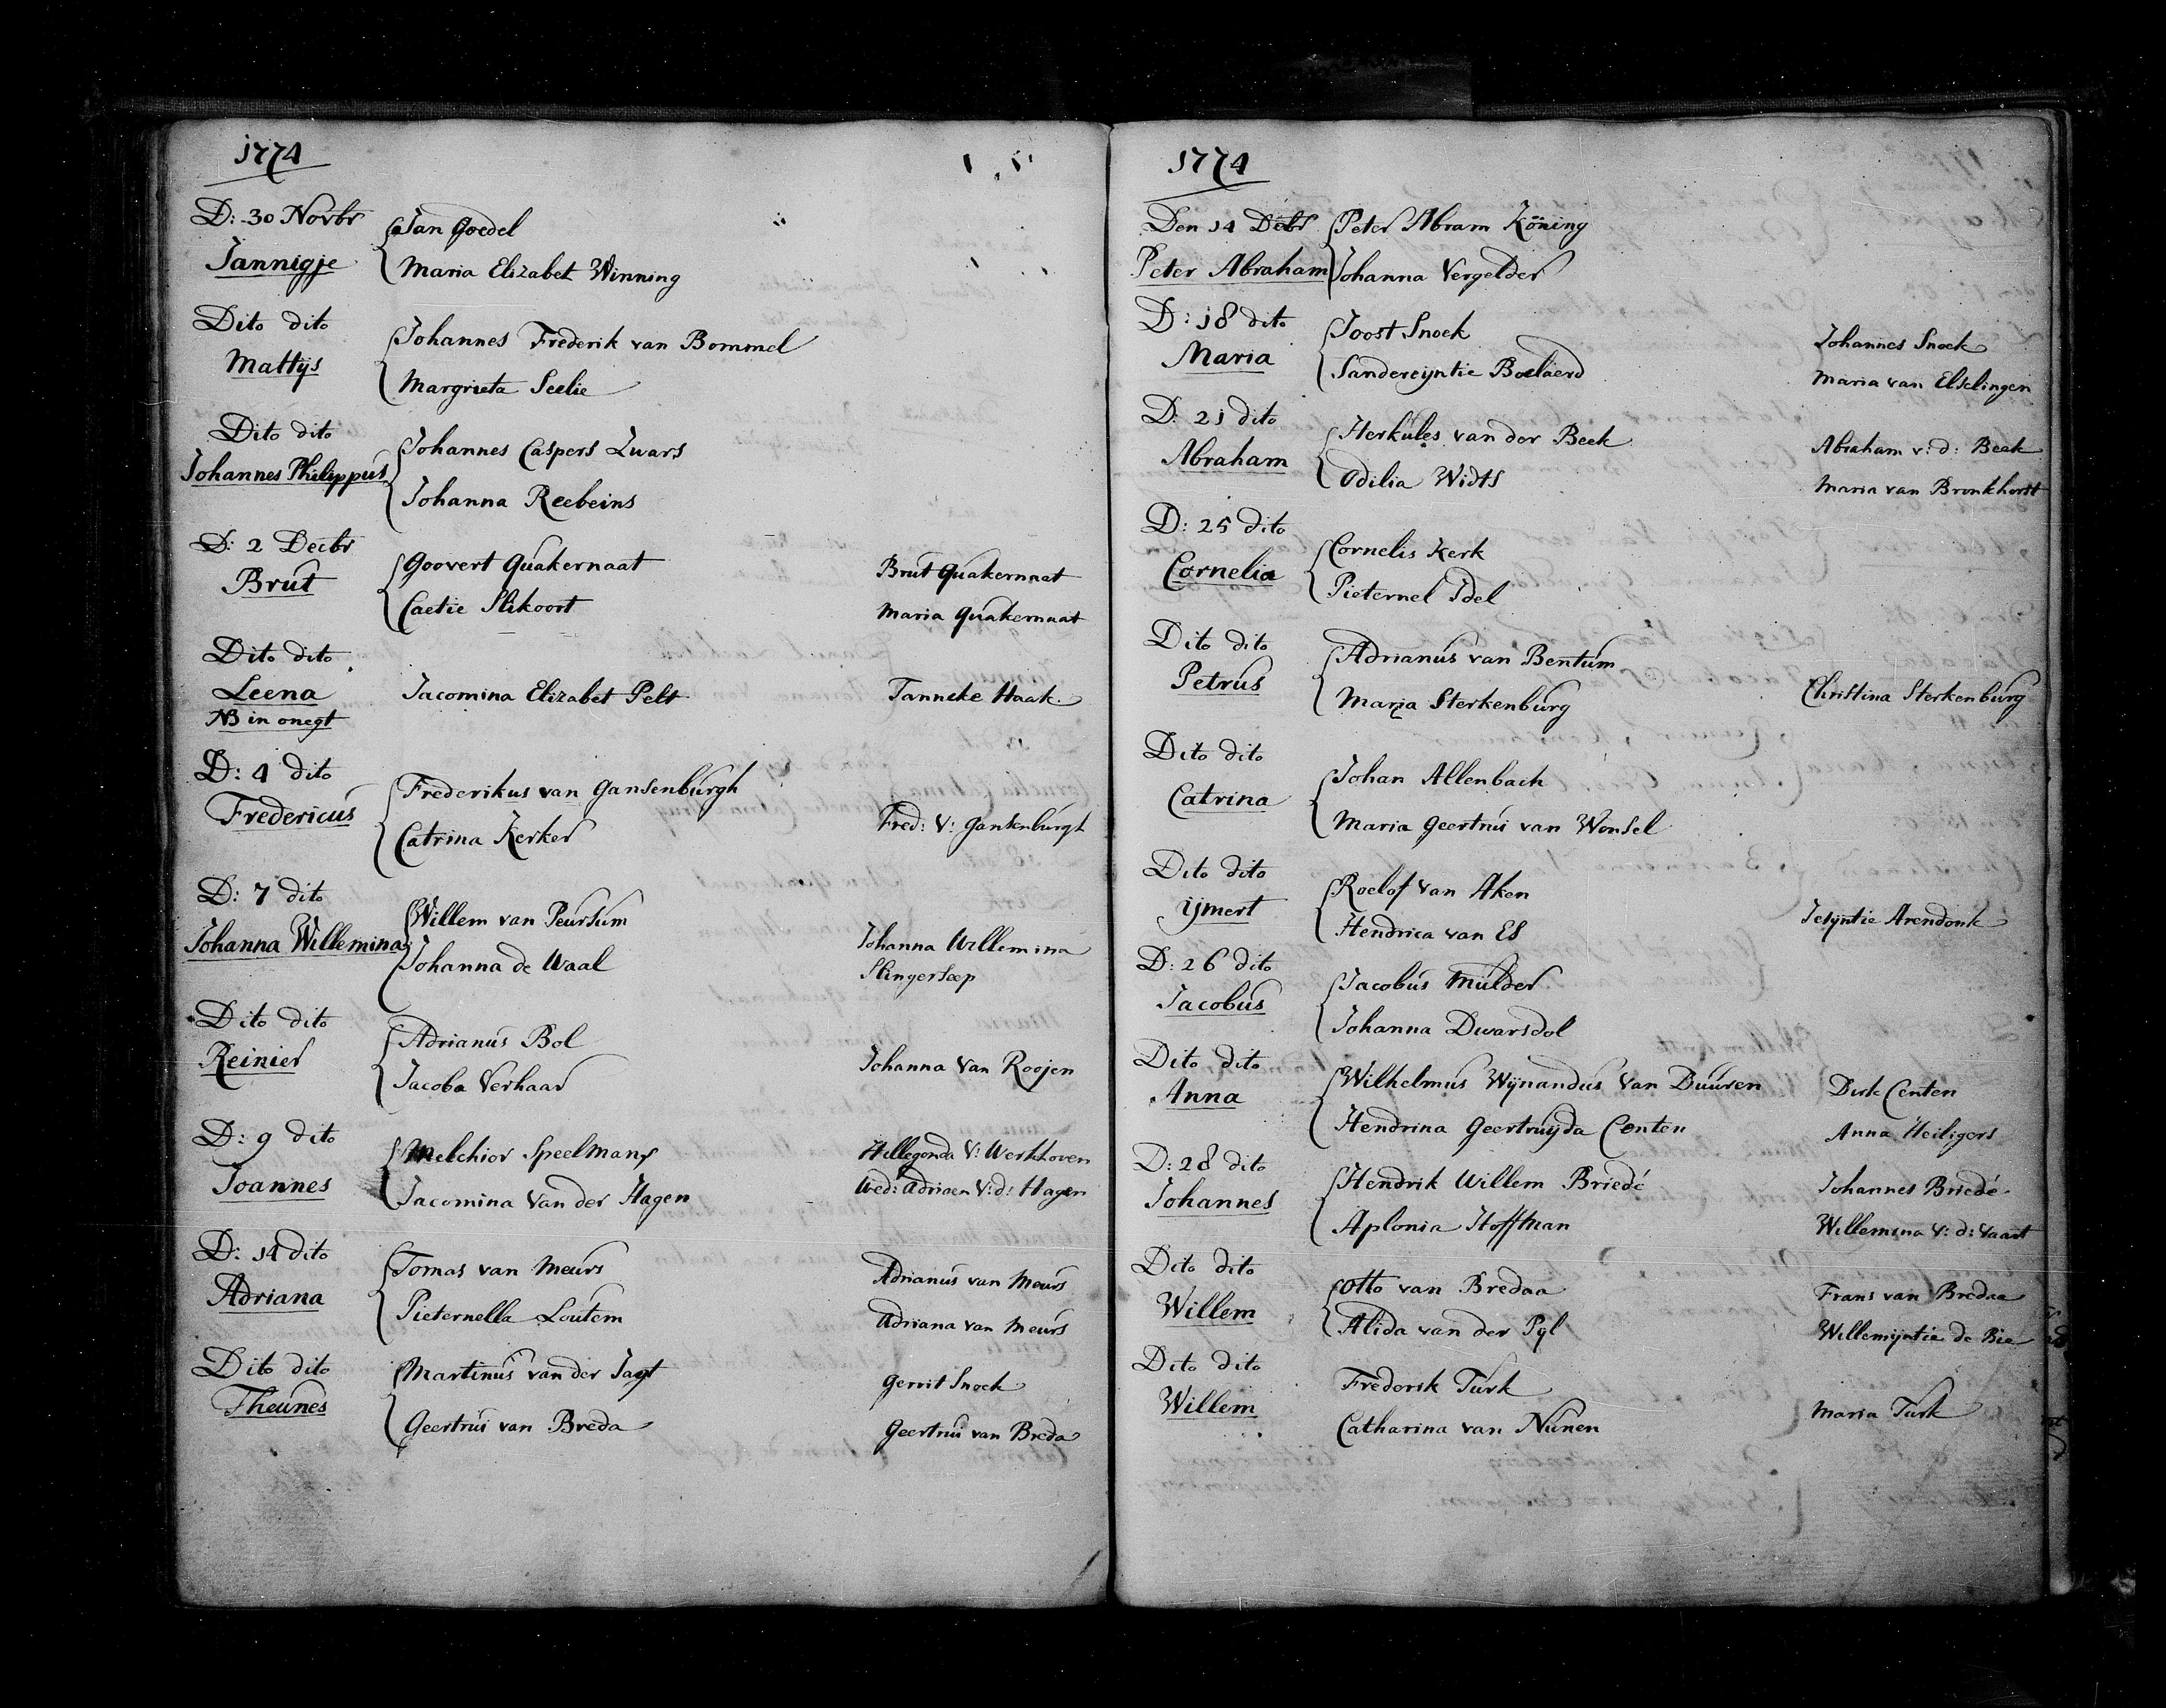 1774
D: 30 Novbr
Jan Goedel
Jannigje
Maria Elizabet Winning
Dito dito
Johannes Frederik van Bommel
Mattijs
Margrieta Seelie
Dito dito
Johannes Caspers Zwars
Johannes Philippus
Johanna Reebeins
D: 2 Decbr
Goovert Quakernaat
Brut Quakernaat
Brut
Caetie Slikoort
Maria Quakernaat
Dito dito
Leena
Jacomina Elizabet Pelt
Tanneke Haak
NB in onegt
D: 4 dito
Frederikus van Gansenburgh
Fredericus
Catrina Kerker
Fred: V: Gansenburgh
D: 7 dito
Willem van Peursum
Johanna Willemina
Johanna Willemina
Johanna de Waal
Slingerseep
Dito dito
Adrianus Bol
Reinier
Jacoba Verhaar
Johanna Van Roojen
D: 9 dito
Melchior Speelmans
Hillegonda V: Werkhoven
Joannes
Jacomina Van der Hagen
Wed: Adriaen V:d: Hagen
D: 14 dito
Tomas van Meurs
Adrianus van Meurs
Adriana
Pieternella Loutem
Adriana van Meurs
Dito dito
Martinus van der Jagt
Gerrit Snoek
Theunes
Geertrui van Breda
Geertrui van Breda
1774
Den 14 Debr
Peter Abram Köning
Peter Abraham
Johanna Vergelder
D: 18 dito
Joost Snoek
Johannes Snoek
Maria
Sandereijntie Boelaerd
Maria van Elselingen
D: 21 dito
Herkules van der Beek
Abraham v: d: Beek
Abraham
Odilia Widts
Maria van Bronkhorst
D: 25 dito
Cornelis Kerk
Cornelia
Pieternel Idel
Dito dito
Adrianus van Bentum
Petrus
Maria Sterkenburg
Christina Sterkenburg
Dito dito
Johan Allenbach
Catrina
Maria Geertrui van Wonsel
Dito dito
Roelof van Aken
ijmert
Hendrica van Es
Jeijntie Arendonk
D: 26 dito
Jacobus Mulder
Jacobus
Johanna Dwarsdol
Dito dito
Wilhelmus Wijnandus Van Duuren
Dirk Centen
Anna
Hendrina Geertruijda Centen
Anna Heiligers
D: 28 dito
Hendrik Willem Briedé
Johannes Briedé
Johannes
Aplonia Hoffman
Willemina V: d: Vaart
Dito dito
Otto van Bredaa
Frans van Bredaa
Willem
Alida van der Pijl
Willemijntie de Bie
Dito dito
Frederik Turk
Willem
Catharina van Nunen
Maria Turk